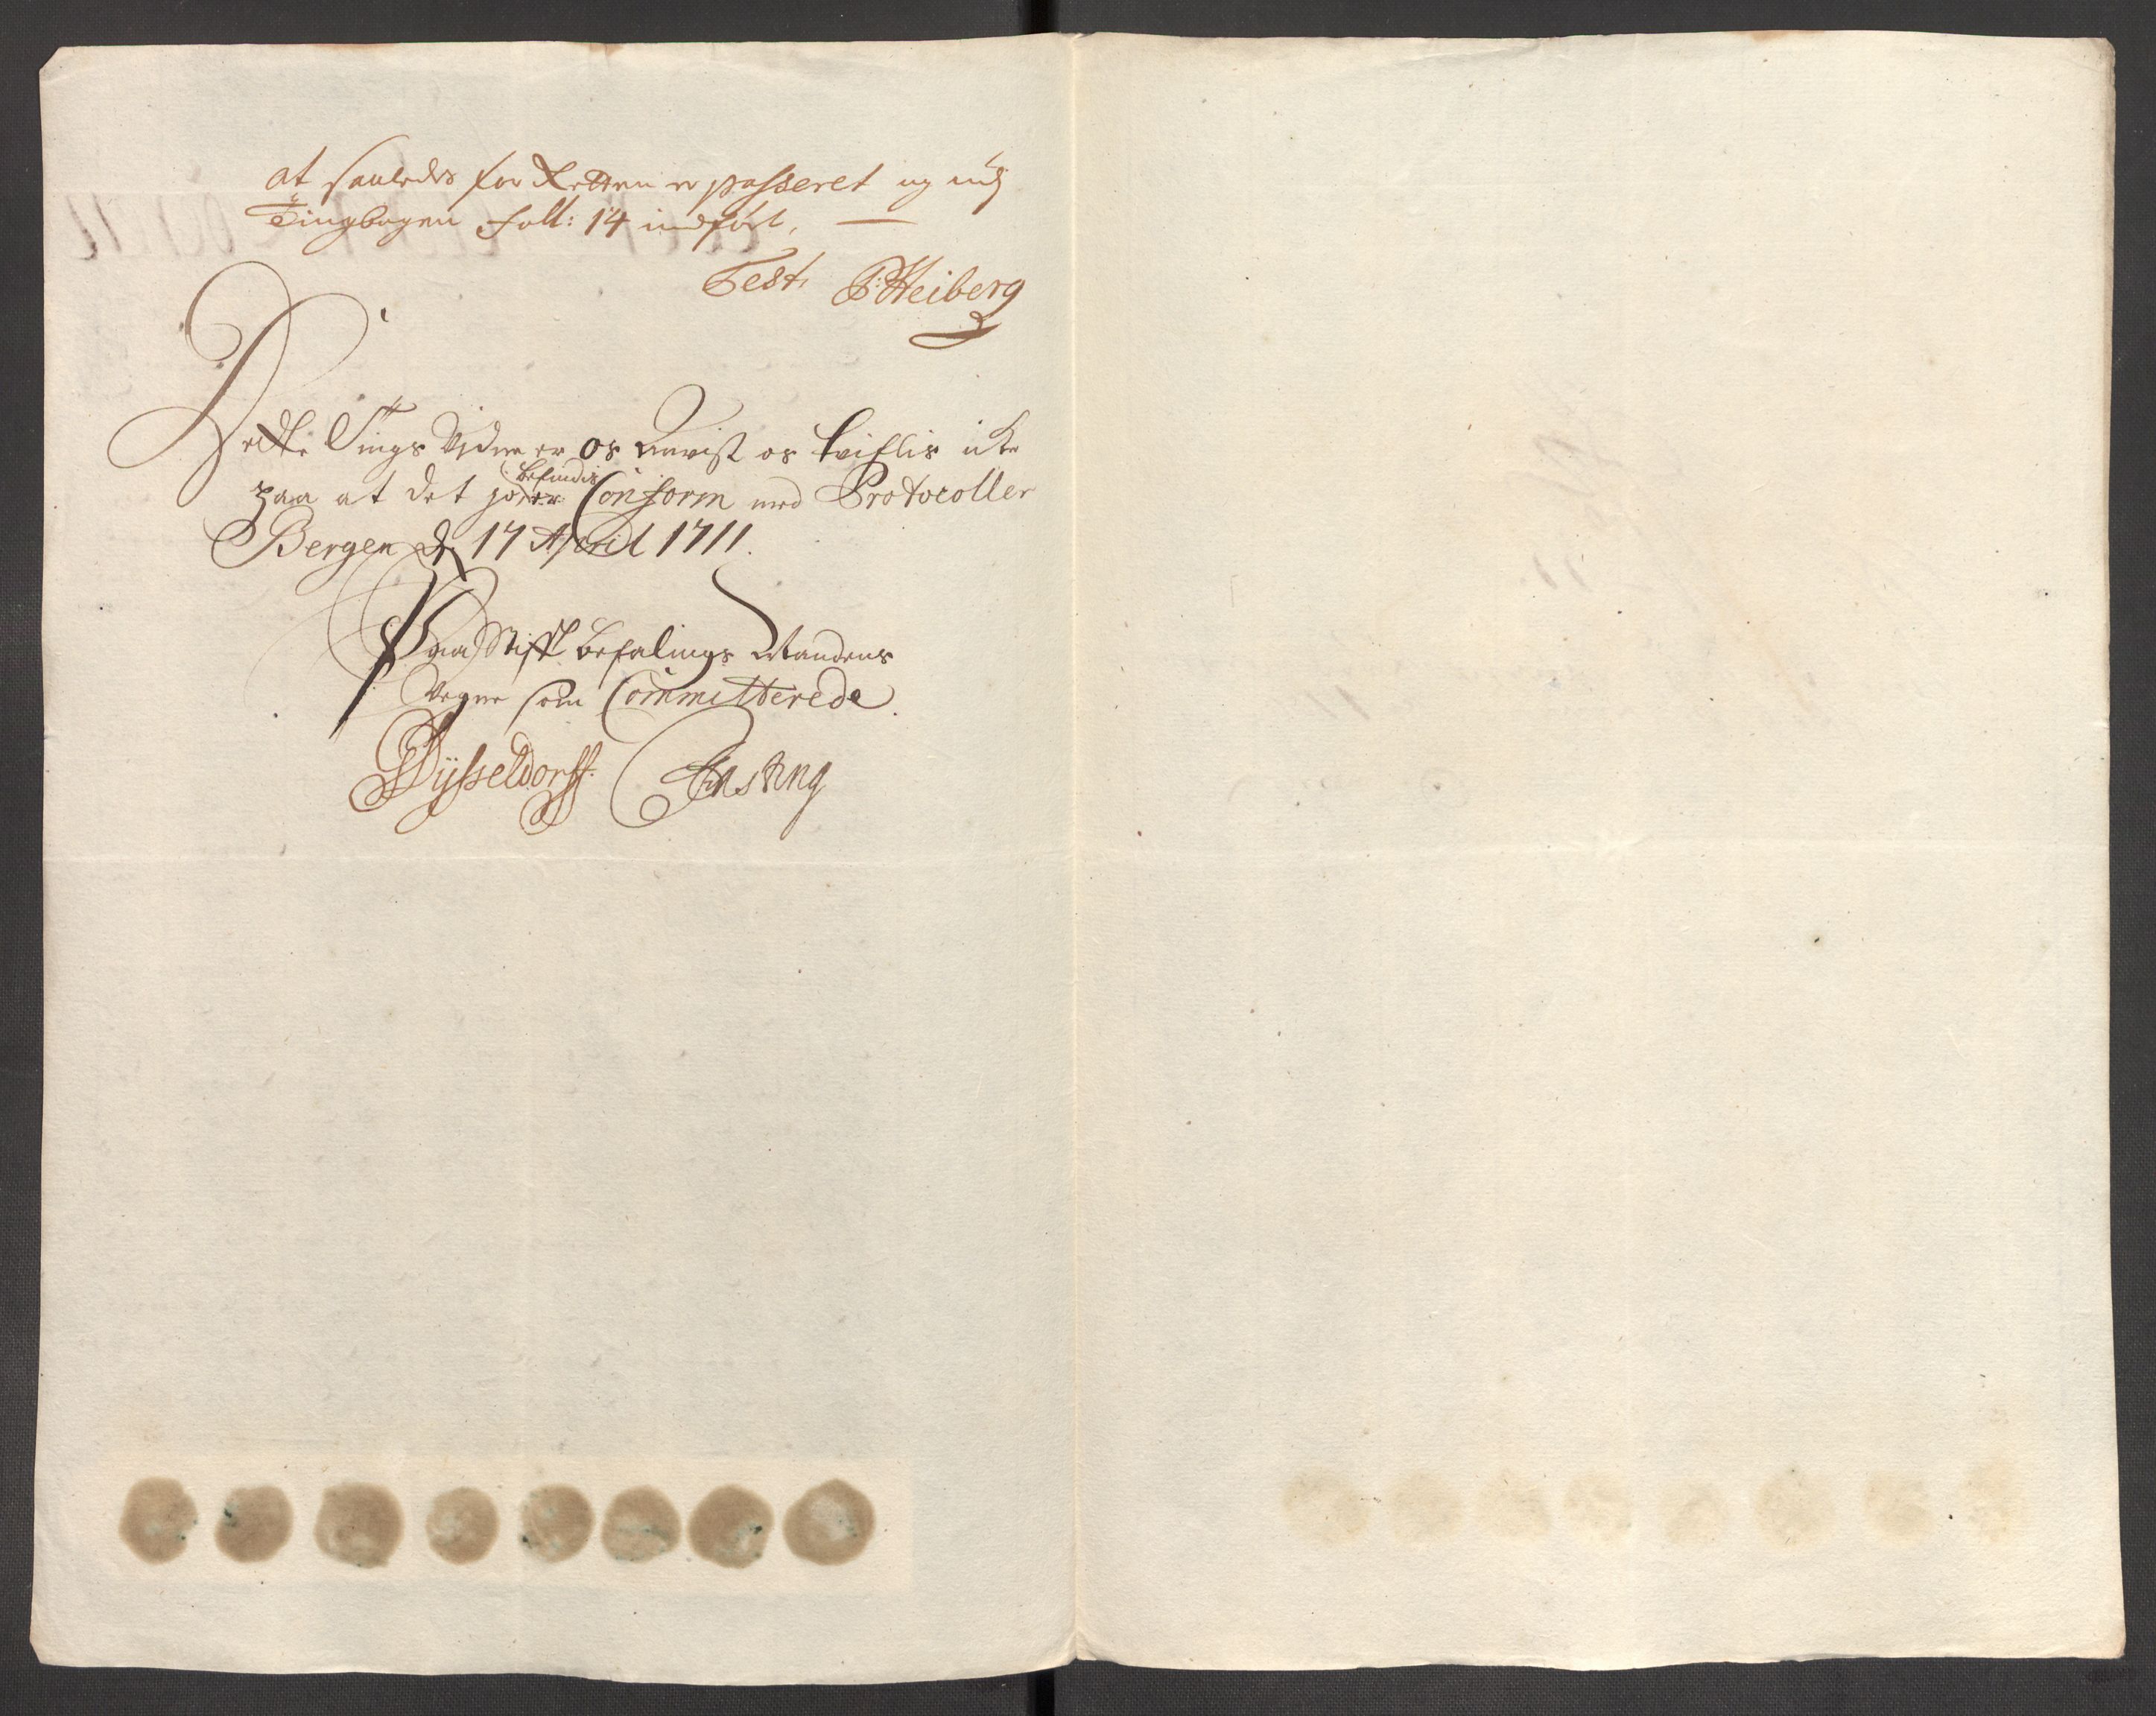 at saaledes for Retten er passeret og udj
Tingbogen foll: 14 indført,
Test. P: Heiberg
Dette Tings Widne er os anvist os tviflis icke
paa at det jo befindis Conform med Protocollen
Bergen d. 17 April 1711.
Paa Stift befalings Mandens
Vegne som Committerede
Dysseldorff.